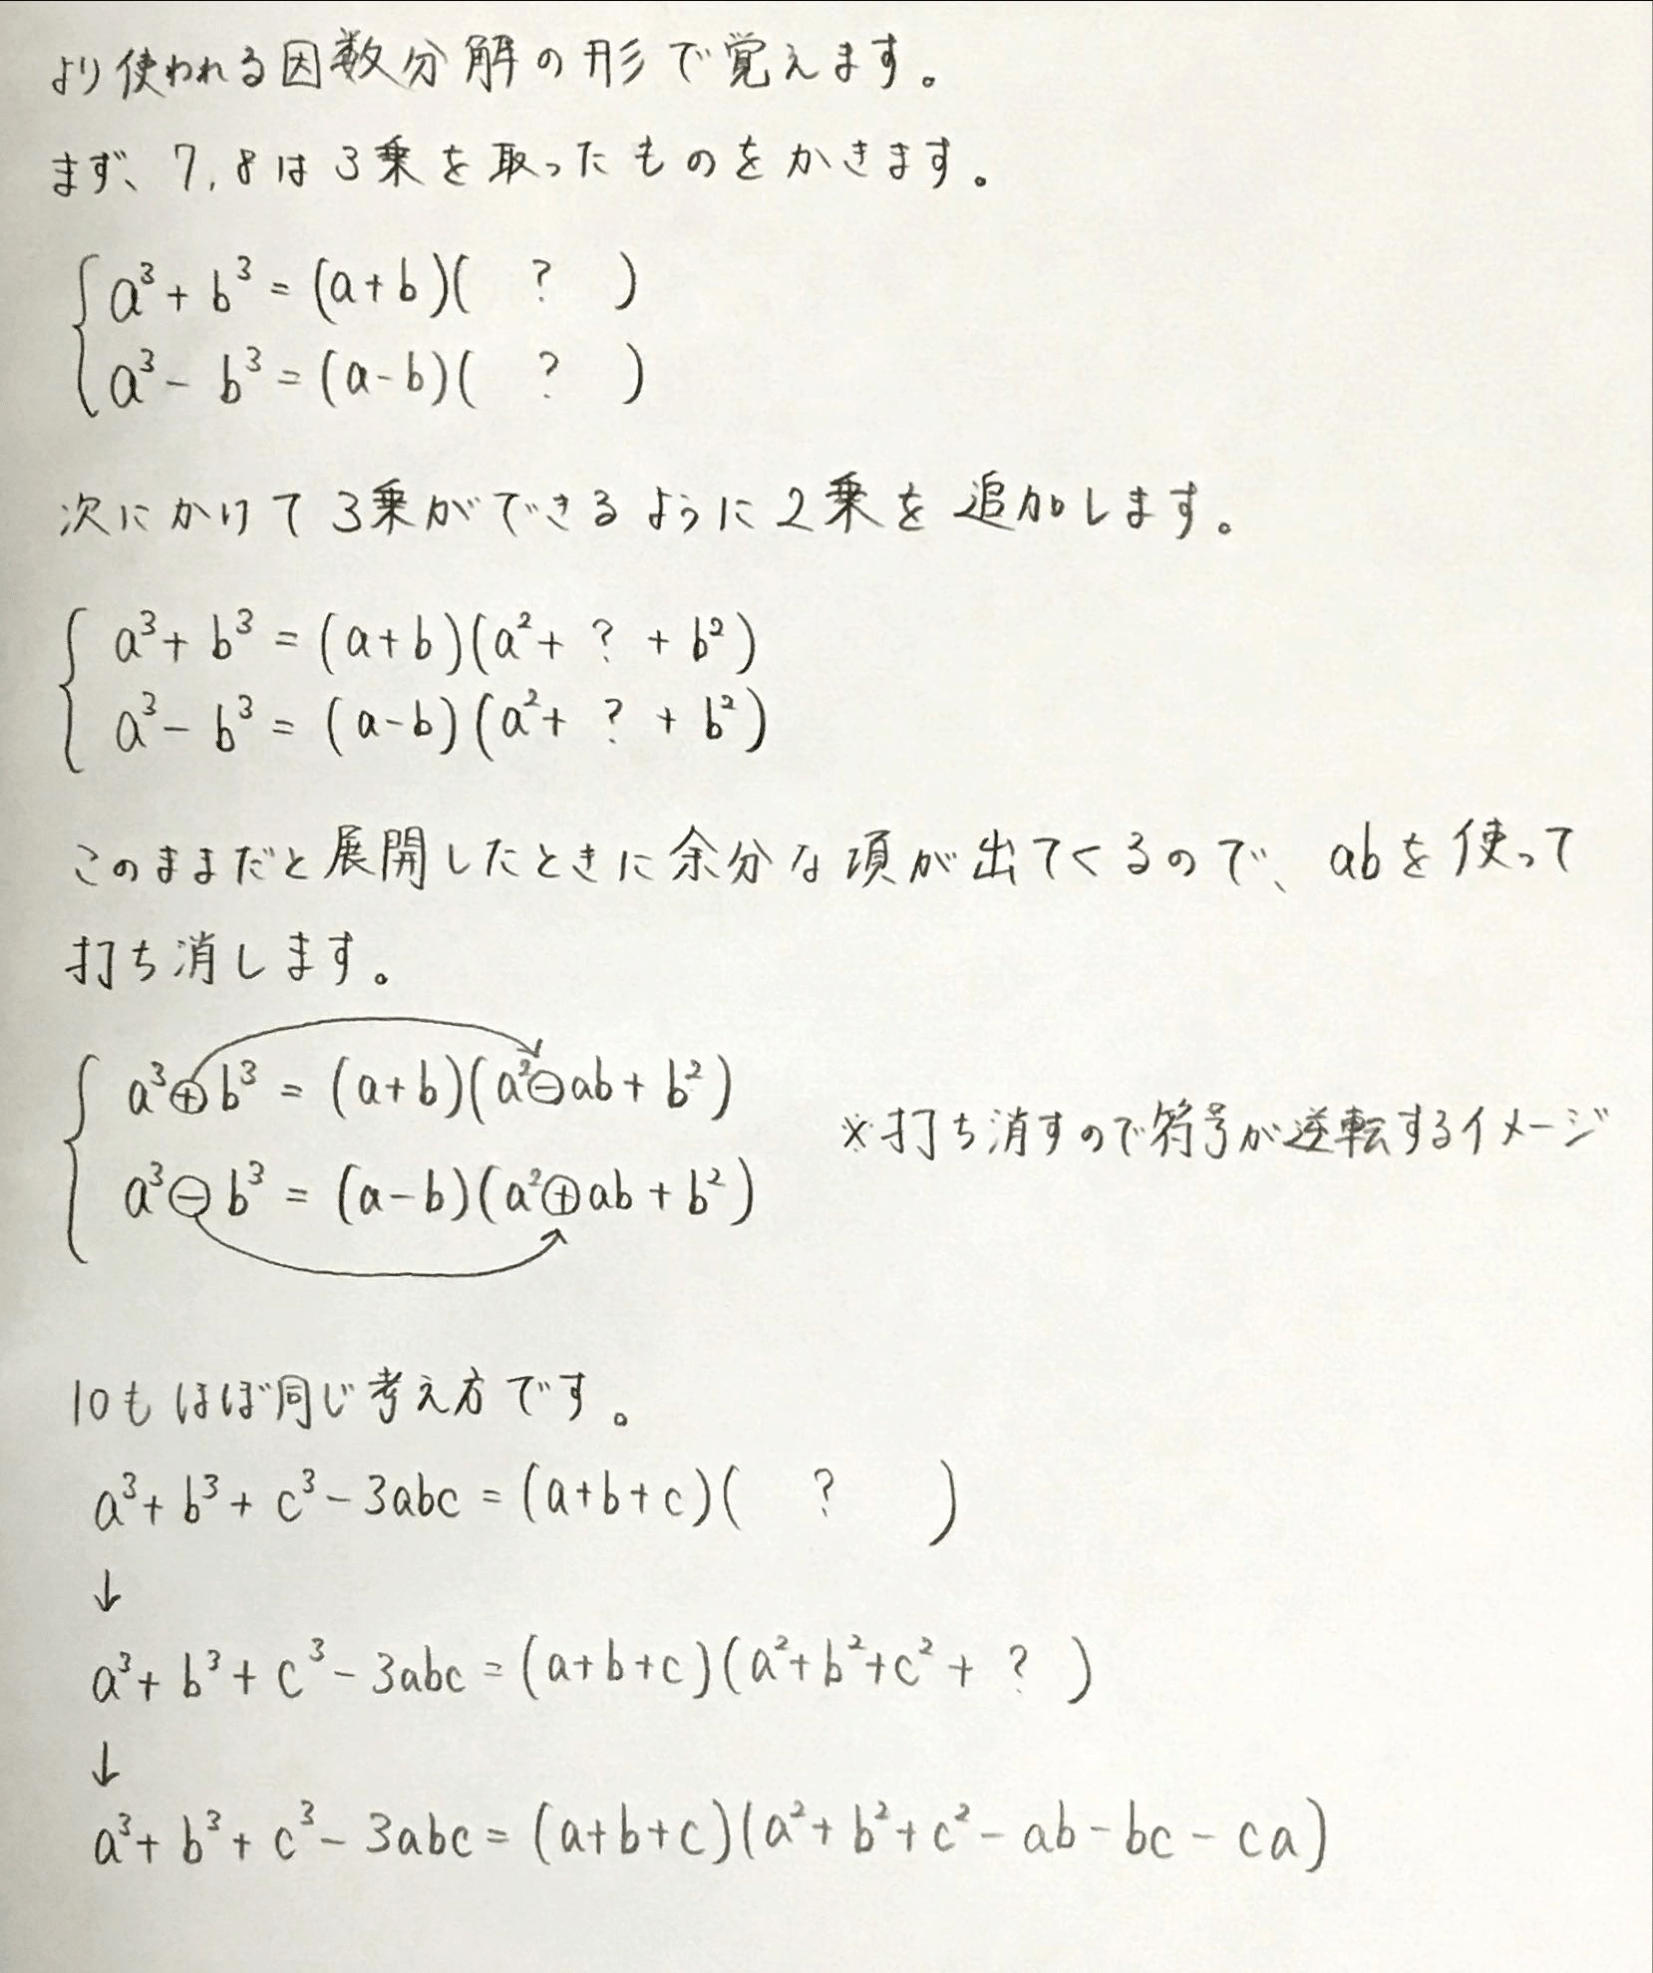 より使われる因数分解の形で覚えます。
まず、7,8は3乗を取ったものをかきます。
a³+b³=(a+b)( ? )
a³-b³=(a-b)( ? )
次にかけて3乗ができるように2乗を追加します。
a³+b³=(a+b)(a²+ ? +b²)
a³-b³=(a-b)(a²+ ? +b²)
このままだと展開したときに余分な項が出てくるので、abを使って
打ち消します。
a³⊕b³=(a+b)(a²⊖ab+b²)
※打ち消すので符号が逆転するイメージ
a³⊖b³=(a-b)(a²⊕ab+b²)
10もほぼ同じ考え方です。
a³+b³+c³-3abc=(a+b+c)( ? )
↓
a³+b³+c³-3abc=(a+b+c)(a²+b²+c²+ ? )
↓
a³+b³+c³-3abc=(a+b+c)(a²+b²+c²-ab-bc-ca)